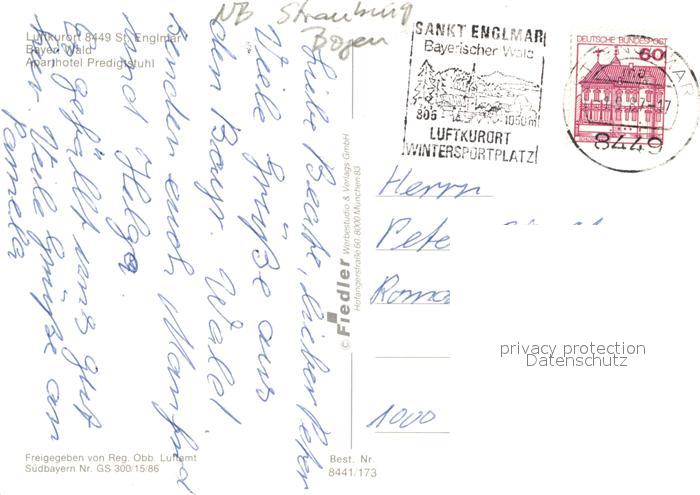 NB Straubing
Bogen
Luftkurort 8449 St. Englmar
Bayer. Wald
Aparthotel Predigtstuhl
SANKT ENGLMAR
Bayerischer Wald
805 - 1050m
LUFTKURORT
WINTERSPORTPLATZ
DEUTSCHE BUNDESPOST
60
8449
Liebe Beate, lieber Peter
Viele Grüße aus
dem Bayr. Wald
senden euch Manfred
und Helga
Es gefällt uns gut
hier. Viele Grüße an
Pamela
© Fiedler Werbestudio & Verlags GmbH
Hofangerstraße 60, 8000 München 83
Herrn
Pete
Roma
1000
privacy protection
Datenschutz
Freigegeben von Reg. Obb. Luftamt
Südbayern Nr. GS 300/15/86
Best. Nr.
8441/173